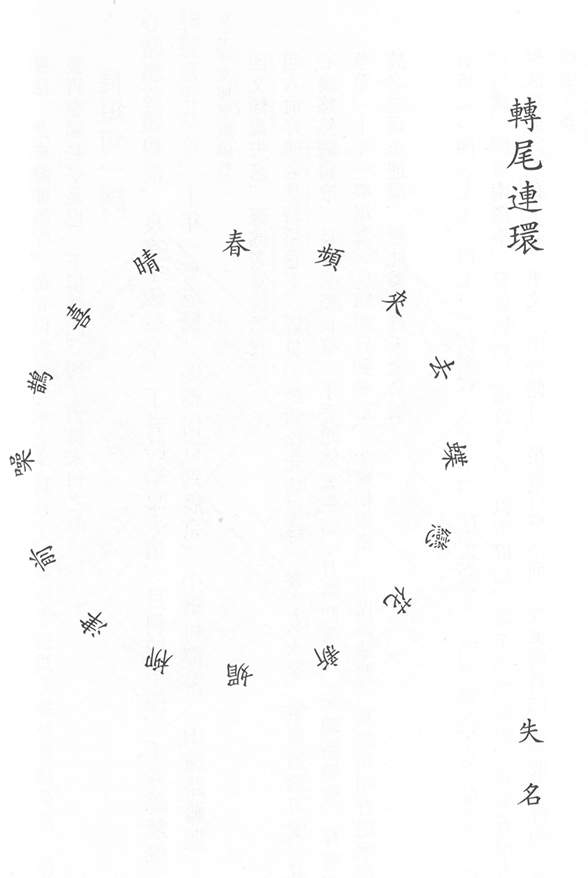 轉尾連環
失名
春頻來去蝶戀花新媚柳津前噪鵲喜晴